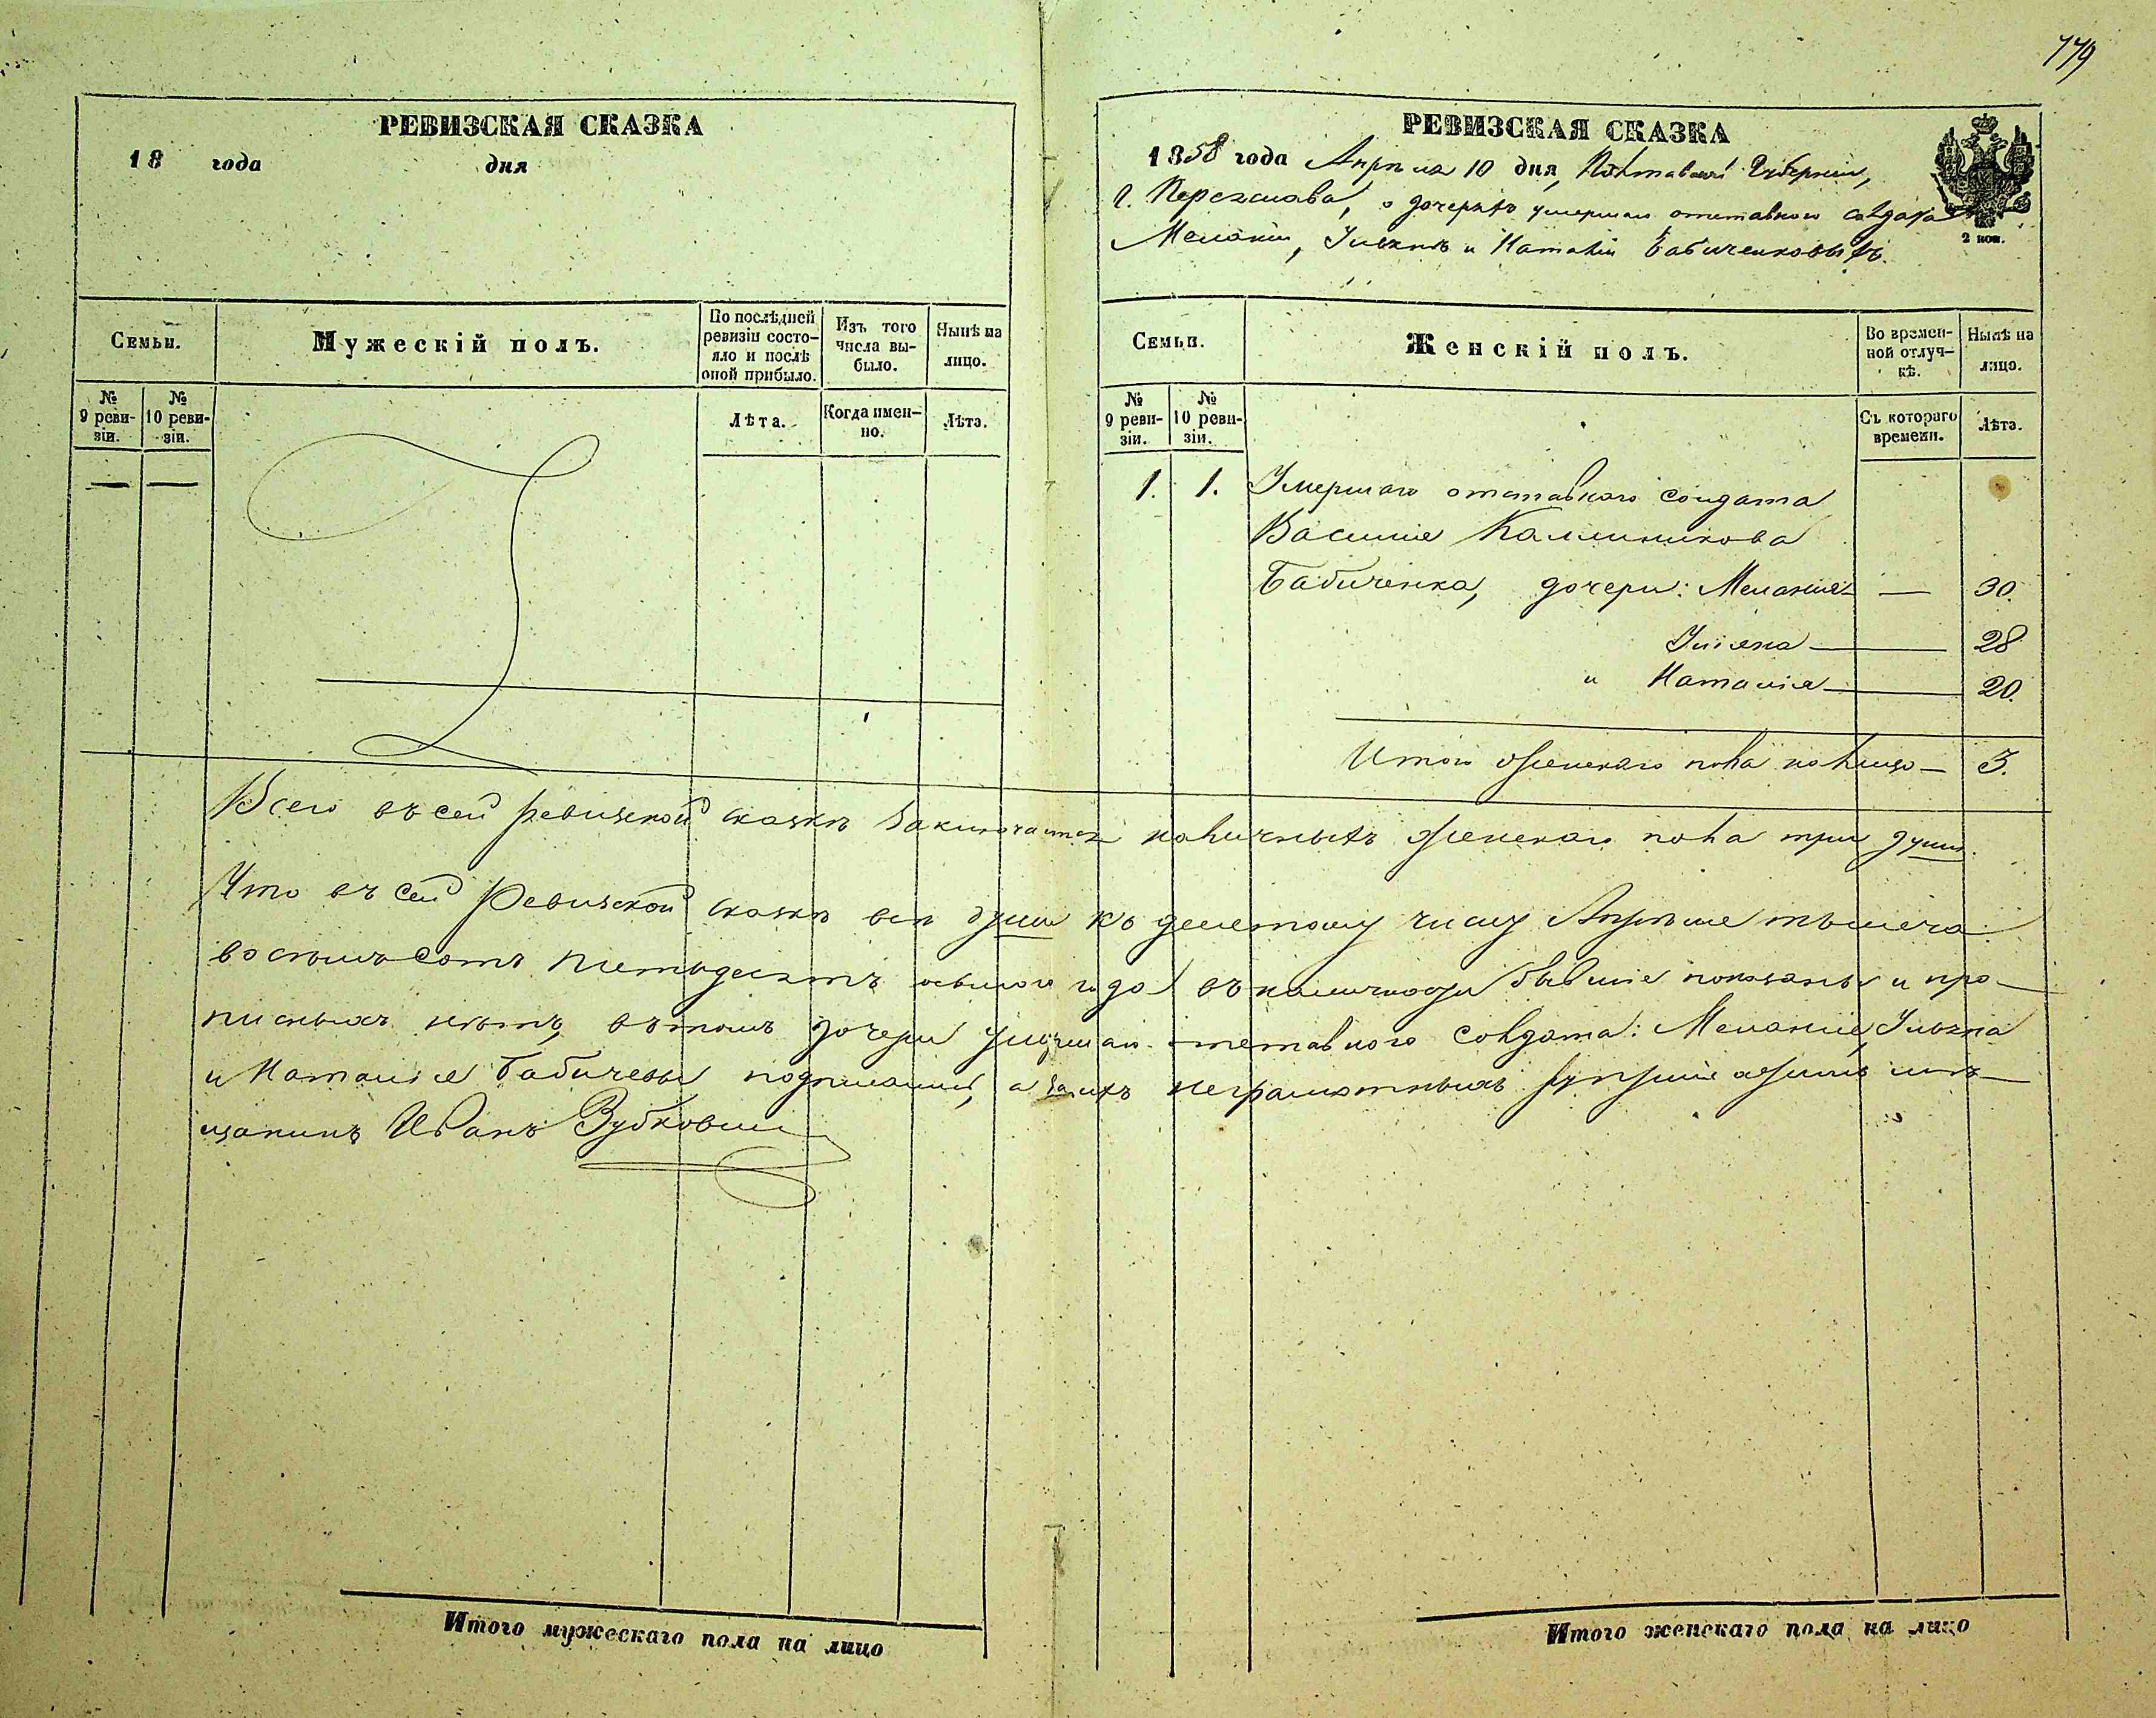 779
РЕВИЗСКАЯ СКАЗКА
18 года дня
Семьи.
Мужескій полъ.
По послѣдней ревизіи состояло и послѣ оной прибыло.
Изъ того числа выбыло.
Нынѣ на лицо.
№ 9 ревизіи.
№ 10 ревизіи.
Лѣта.
Когда именно.
Лѣта.
— —
РЕВИЗСКАЯ СКАЗКА
1858 года Апрѣля 10 дня, Полтавской Губерніи,
г. Переяслава, о дочеряхъ умершаго отставного солдата
Меланіи, Ульянѣ и Наталіи Бабиченковыхъ.
2 коп.
Семьи.
Женскій полъ.
Во временной отлучкѣ.
Нынѣ на лицо.
№ 9 ревизіи.
№ 10 ревизіи.
Съ котораго времени.
Лѣта.
1. 1. Умершаго отставнаго солдата
Василія Калиникова
Бабиченка, дочери: Меланія — 30.
Уліяна — 28
и Наталія — 20.
Итого женскаго пола на лицо — 3.
Всего въ сей ревизской сказкѣ заключается наличныхъ женскаго пола три души.
Что въ сей Ревизской сказкѣ всѣ души къ десятому числу Апрѣля тысяча
восемъсотъ пятьдесятъ осьмого года въ наличности бывшіе показаны и про-
писныхъ нѣтъ, въ томъ дочери умершаго отставного солдата: Меланія, Ульяна
и Наталія Бабичевы подписались, а за ихъ неграмотныхъ мѣ-
щанинъ Иванъ
Итого мужескаго пола на лицо
Итого женскаго пола на лицо